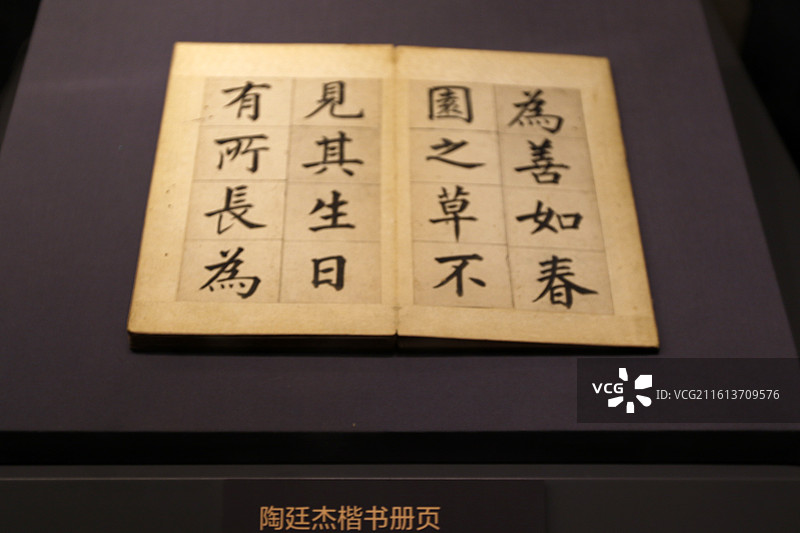 為善如春
園之草不
見其生日
有所長為
VCG
ID: VCG211613709576
陶廷杰楷书册页